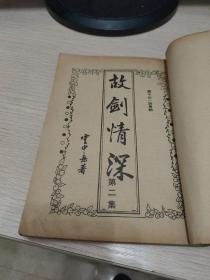 故劍情深
第二集
雲中岳著